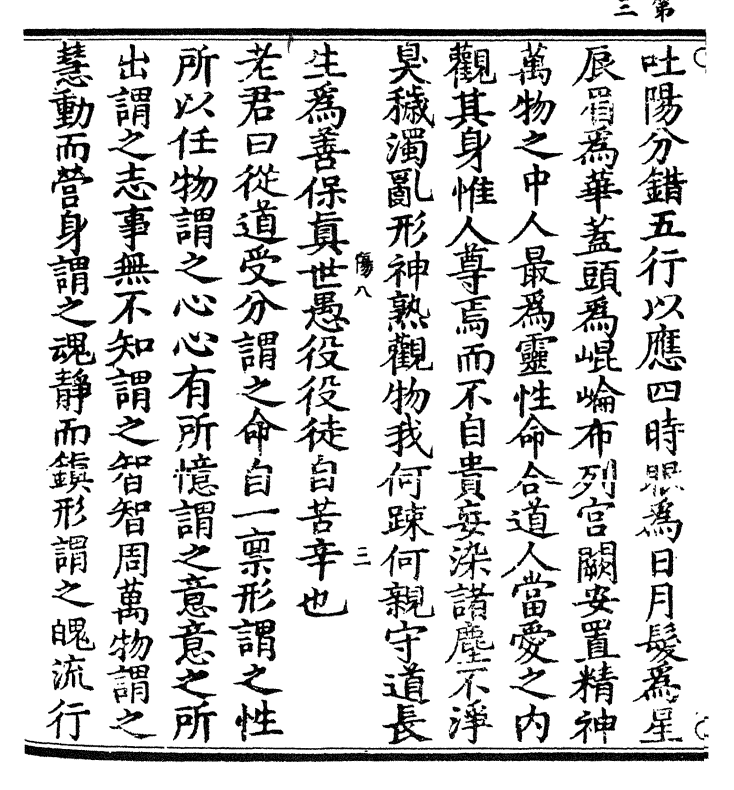 第三
吐陽分錯五行以應四時眼為日月髮為星
辰眉為華蓋頭為崐崘布列宮闕安置精神
萬物之中人最為靈性命合道人當愛之內
觀其身惟人尊焉而不自貴妄染諸塵不淨
臭穢濁亂形神熟觀物我何踈何親守道長
生為善保真世愚役役徒自苦辛也
傷八
三
老君曰從道受分謂之命自一稟形謂之性
所以任物謂之心心有所憶謂之意意之所
出謂之志事無不知謂之智智周萬物謂之
慧動而營身謂之魂靜而鎮形謂之魄流行